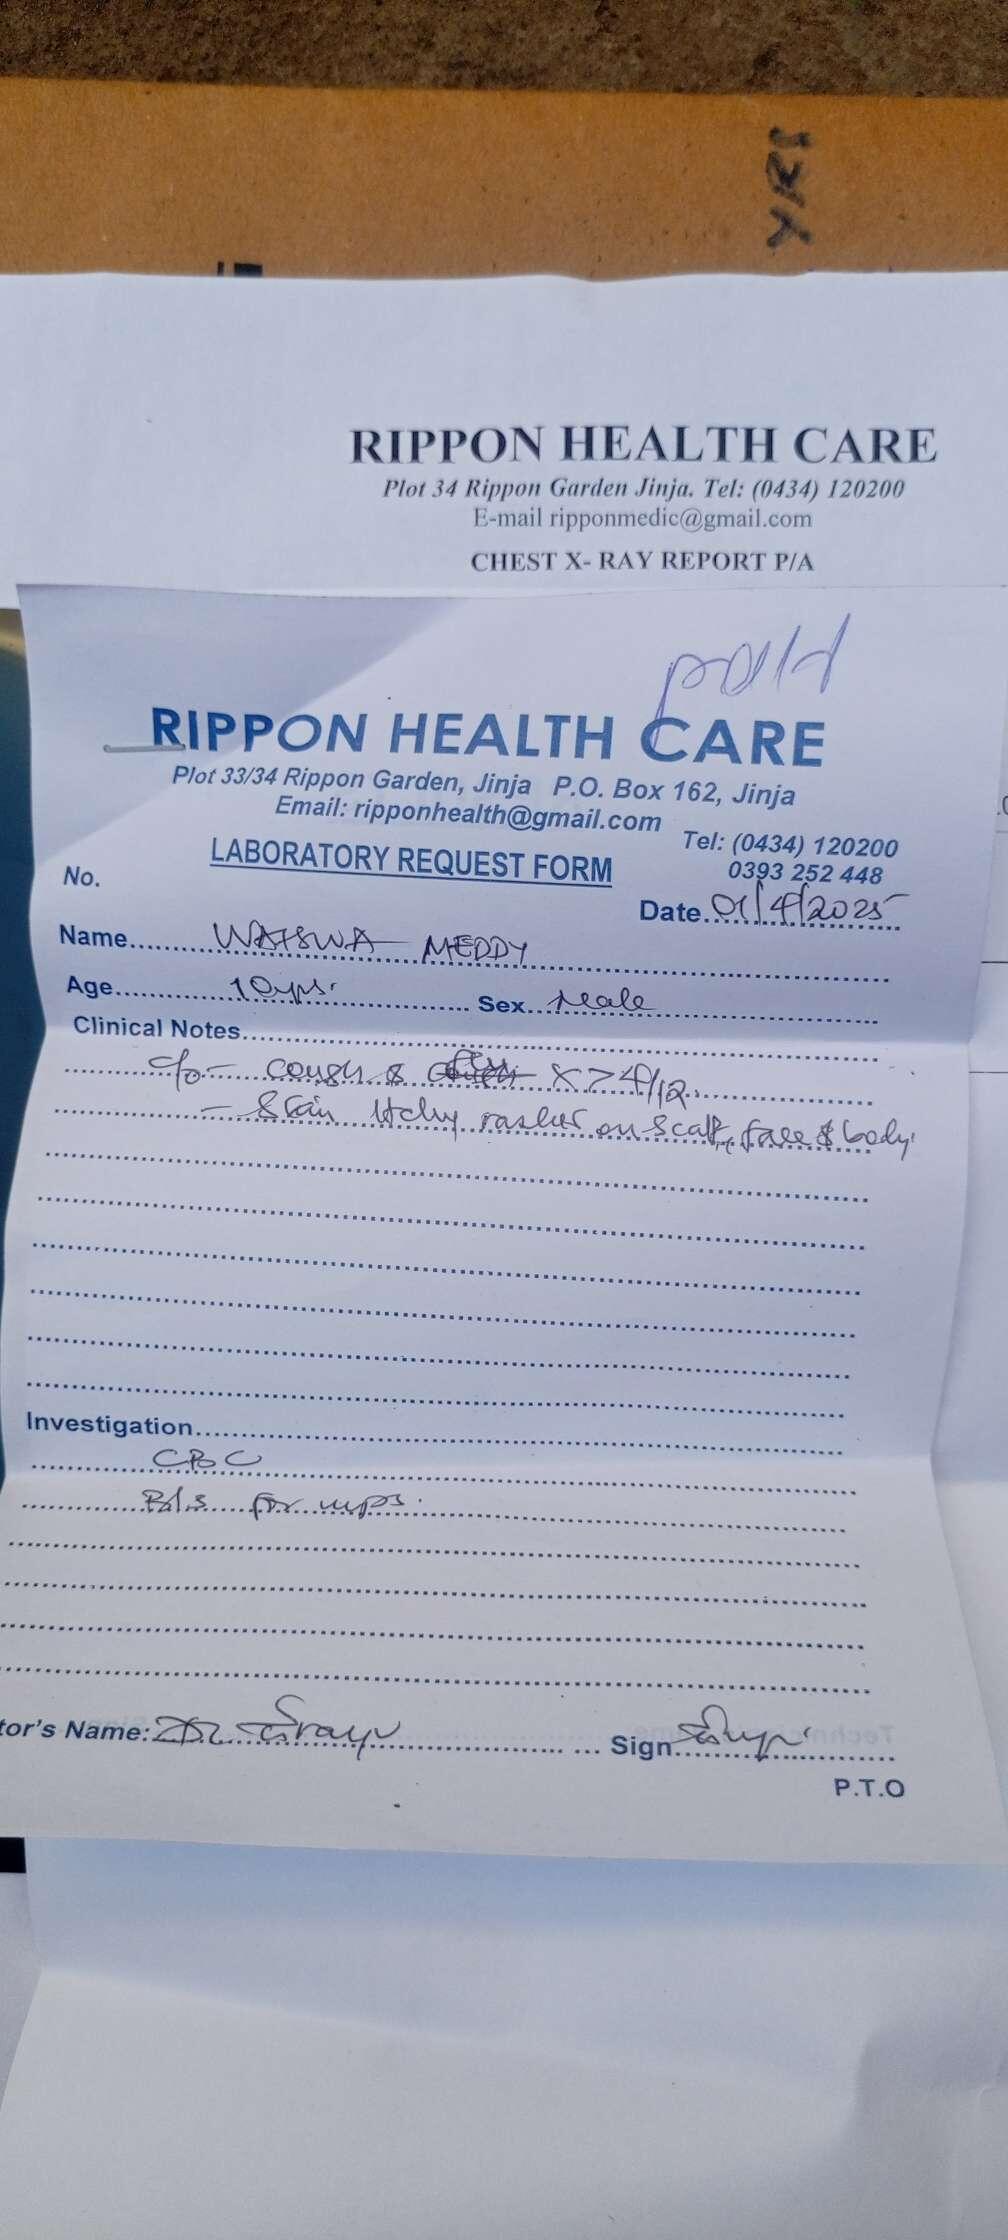 YRS
RIPPON HEALTH CARE
Plot 34 Rippon Garden Jinja. Tel: (0434) 120200
E-mail ripponmedic@gmail.com
CHEST X- RAY REPORT P/A
paid
RIPPON HEALTH CARE
Plot 33/34 Rippon Garden, Jinja P.O. Box 162, Jinja
Email: ripponhealth@gmail.com
Tel: (0434) 120200
0393 252 448
LABORATORY REQUEST FORM
No.
Date 01/4/2025
Name WAISWA MEDDY
Age 10yrs. Sex Male
Clinical Notes
c/o - cough & x > 4/12
- Skin itchy rashes on scalp, face & body.
Investigation
CBC
B/s for mps.
tor's Name: Dr Sign
P.T.O